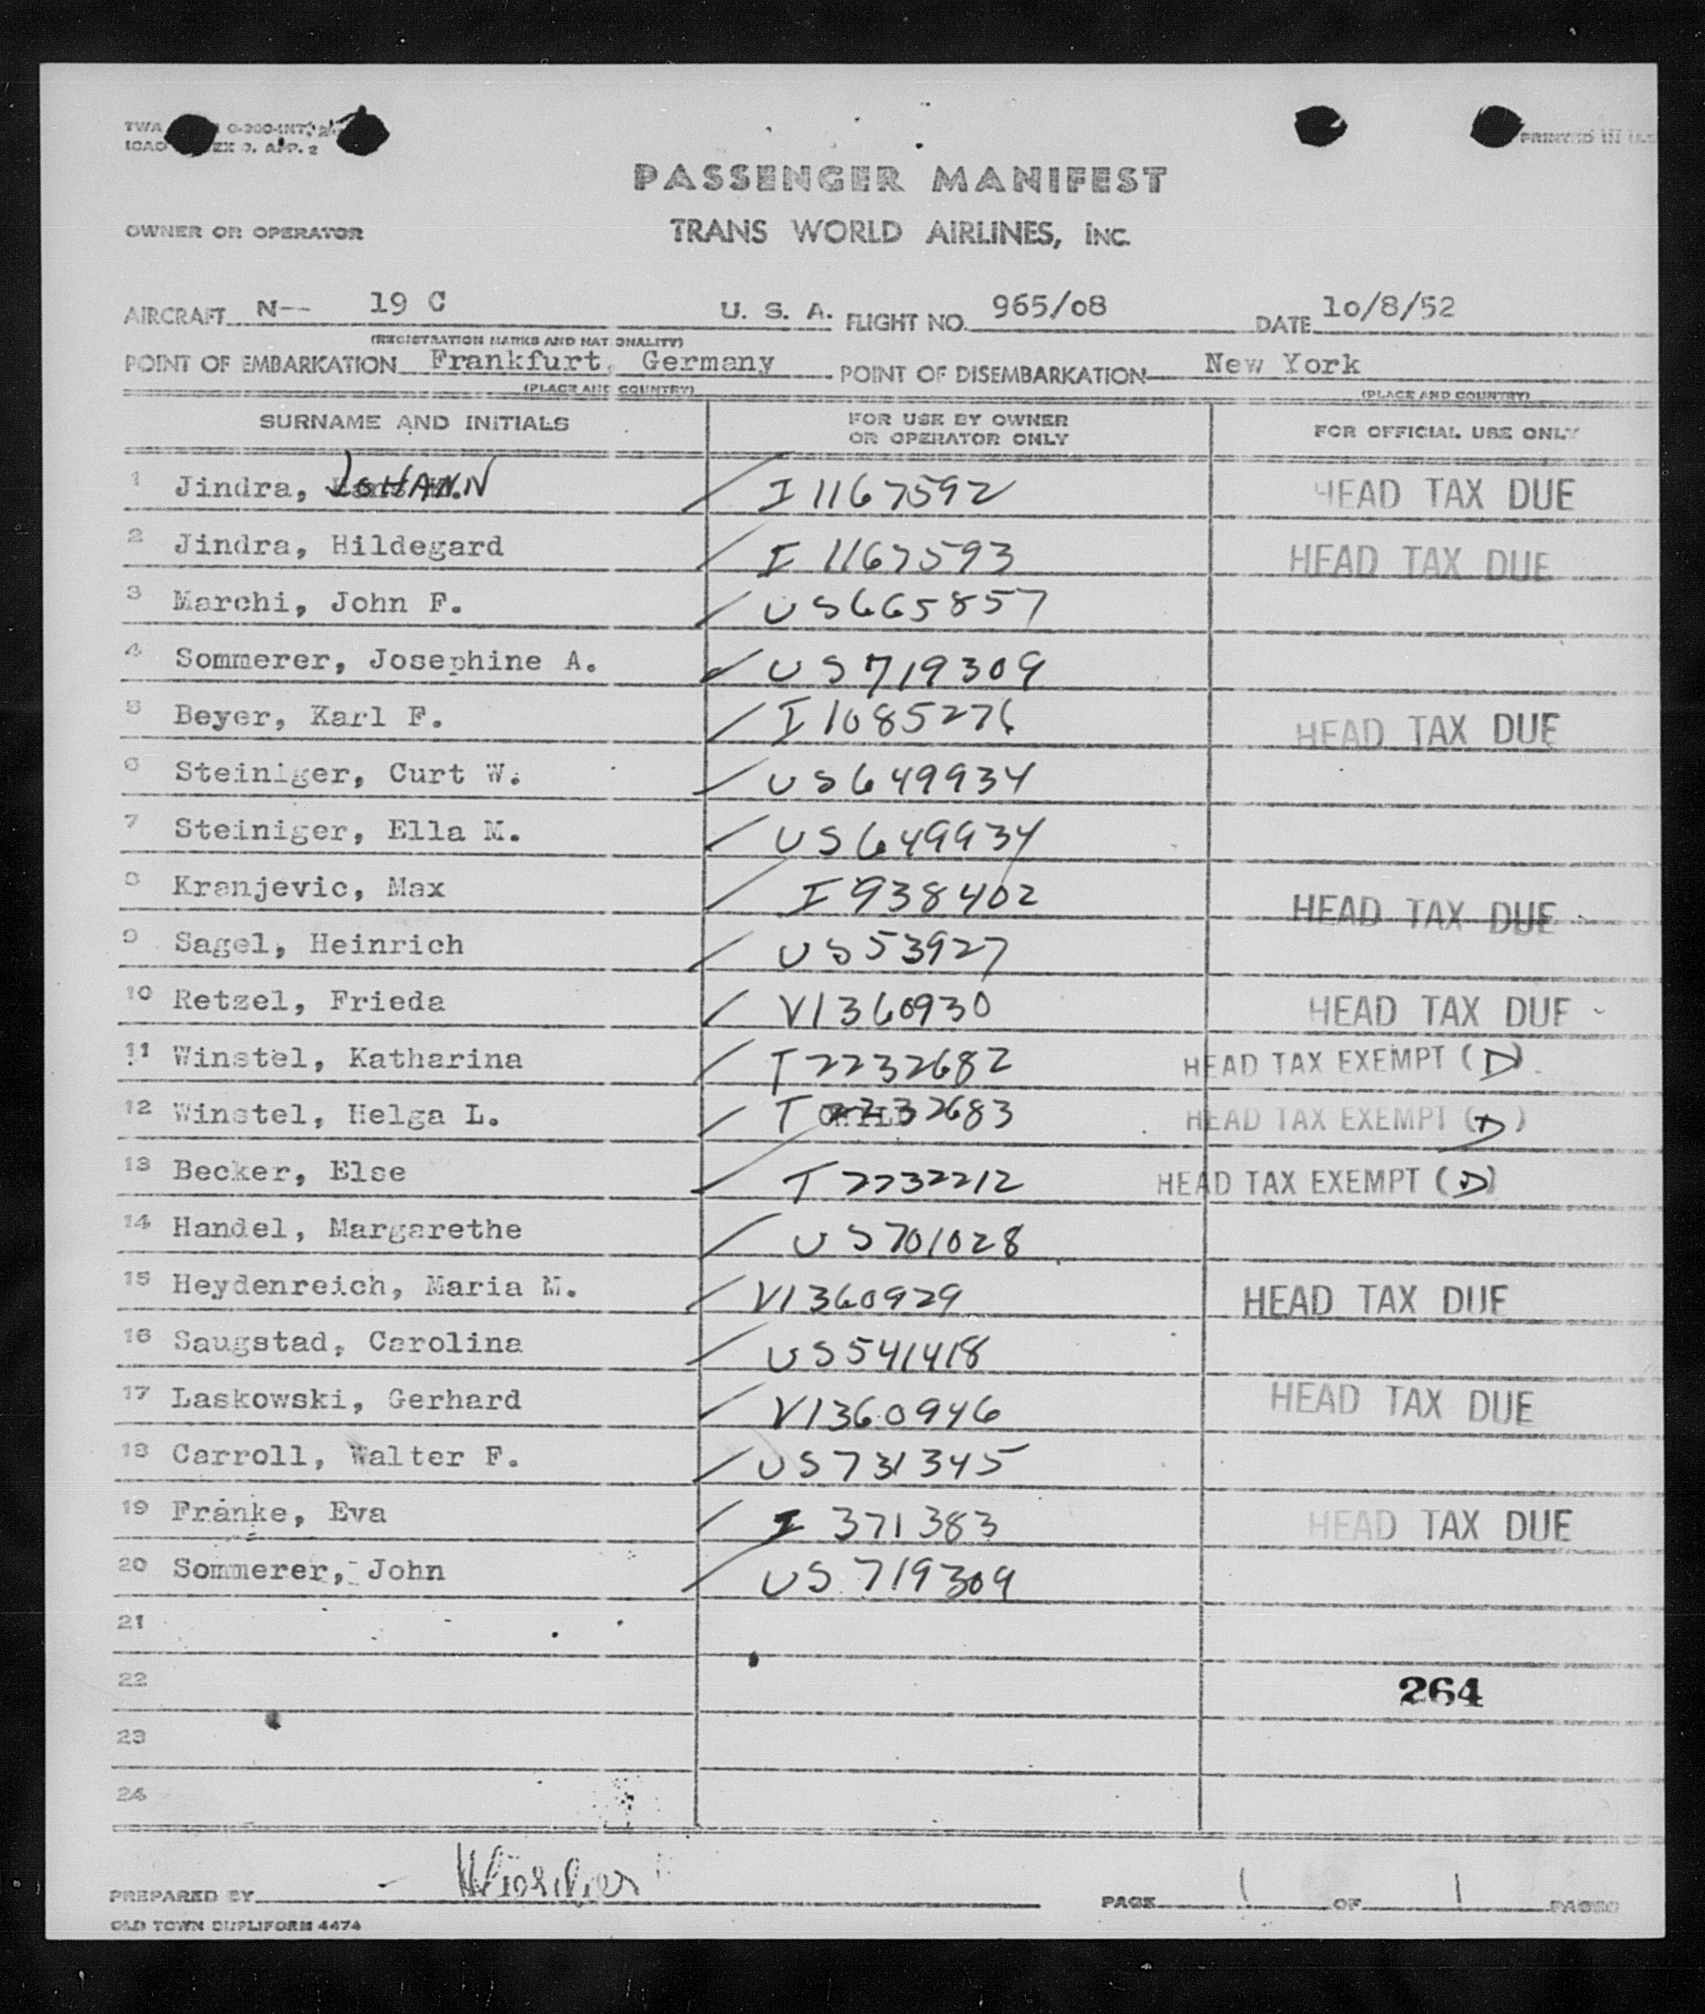 PRINTED IN U.S.
PASSENGER MANIFEST
OWNER OR OPERATOR TRANS WORLD AIRLINES, INC.
AIRCRAFT N-- 19 C U. S. A. FLIGHT NO. 965/o8 DATE 1o/8/52
(REGISTRATION MARKS AND NATIONALITY)
POINT OF EMBARKATION Frankfurt, Germany POINT OF DISEMBARKATION New York
(PLACE AND COUNTRY) (PLACE AND COUNTRY)
SURNAME AND INITIALS FOR USE BY OWNER OR OPERATOR ONLY FOR OFFICIAL USE ONLY
1 Jindra, JOHANN I 1167592 HEAD TAX DUE
2 Jindra, Hildegard I 1167593 HEAD TAX DUE
3 Marchi, John F. US665857
4 Sommerer, Josephine A. US719309
5 Beyer, Karl F. I1085276 HEAD TAX DUE
6 Steiniger, Curt W. US649934
7 Steiniger, Ella M. US649934
8 Kranjevic, Max I938402 HEAD TAX DUE
9 Sagel, Heinrich US53927
10 Retzel, Frieda V1360930 HEAD TAX DUE
11 Winstel, Katharina T2232682 HEAD TAX EXEMPT (D)
12 Winstel, Helga L. T2232683 HEAD TAX EXEMPT (D)
13 Becker, Else T2232212 HEAD TAX EXEMPT (D)
14 Handel, Margarethe US701028
15 Heydenreich, Maria M. V1360929 HEAD TAX DUE
16 Saugstad, Carolina US541418
17 Laskowski, Gerhard V1360946 HEAD TAX DUE
18 Carroll, Walter F. US731345
19 Franke, Eva I 371383 HEAD TAX DUE
20 Sommerer, John US 719309
21
22 264
23
24
PREPARED BY PAGE 1 OF 1 PAGES
OLD TOWN DUPLIFORM 4474